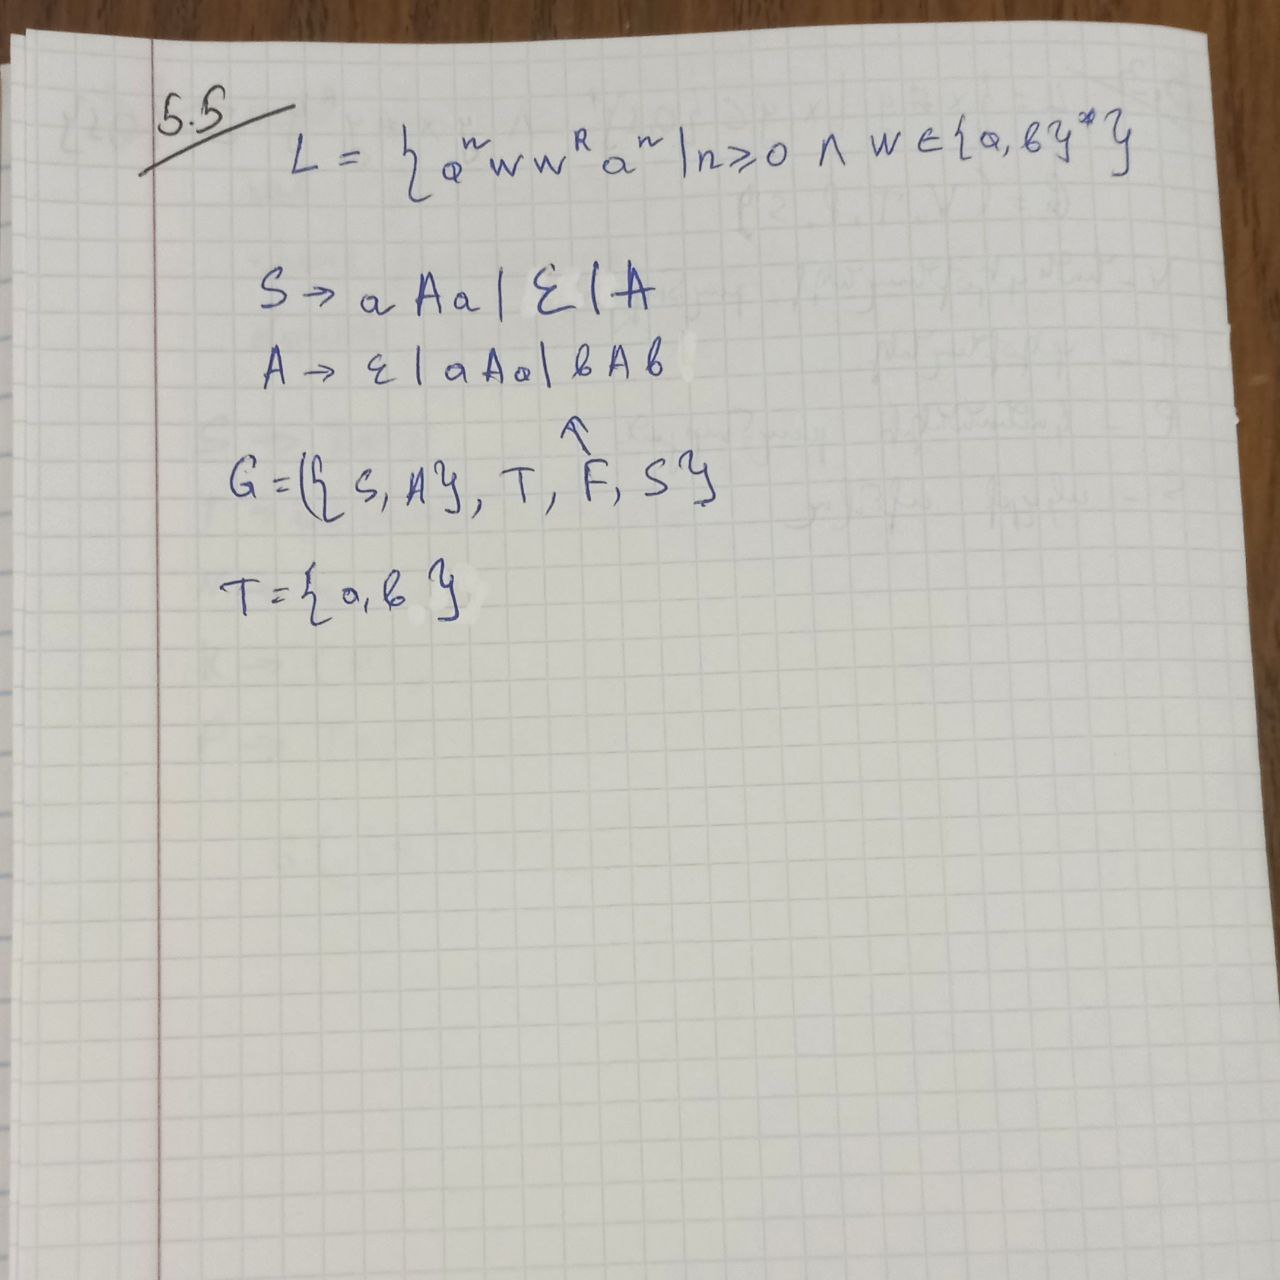 5.5
L = {aⁿwwᴿaⁿ | n ≥ 0 ∧ w ∈ {a, b}*}
S → aAa | ε | A
A → ε | aAa | bAb
↑
G = ({S, A}, T, F, S}
T = {a, b}